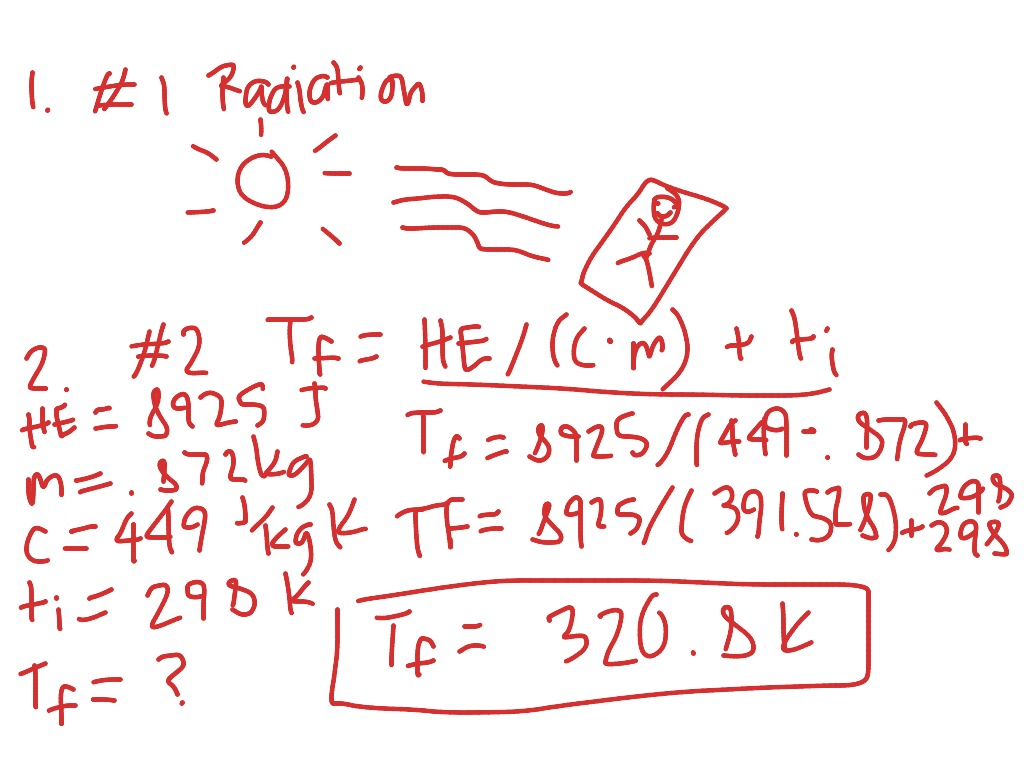 1. #1 Radiation
2. #2 Tf = HE/(c·m) + ti
HE = 8925 J
m = .872 kg
c = 449 J/kg K
ti = 298 K
Tf = ?
Tf = 8925/(449·.872)+298
TF = 8925/(391.528)+298
Tf = 320.8 K